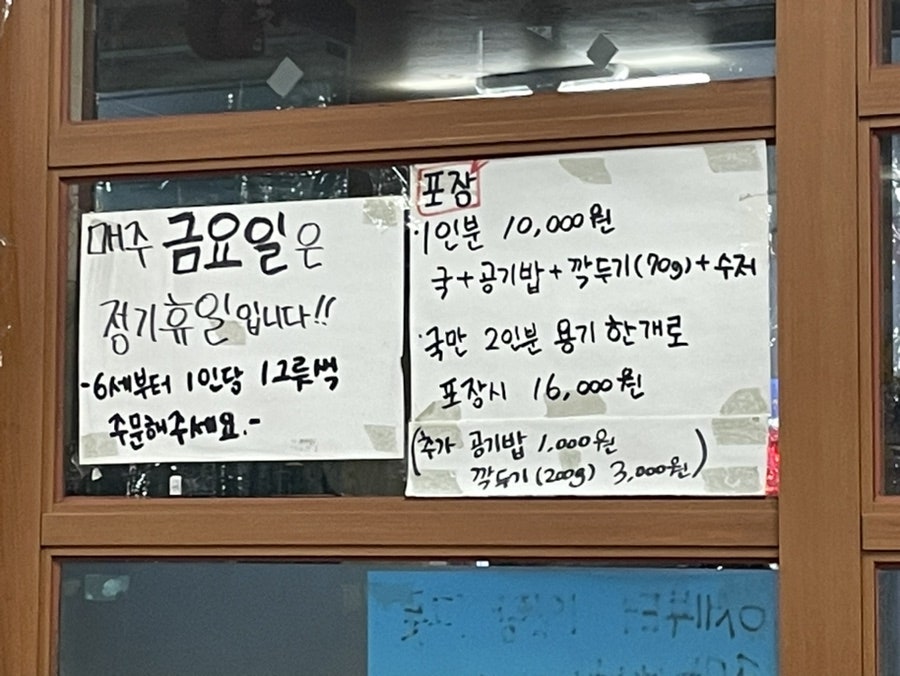 매주 금요일은
정기휴일입니다!!
-6세부터 1인당 1그릇씩
주문해주세요.-
포장
·1인분 10,000원
국+공기밥+깍두기(70g)+수저
·국만 2인분 용기 한개로
포장시 16,000원
(추가 공기밥 1,000원
깍두기(200g) 3,000원)